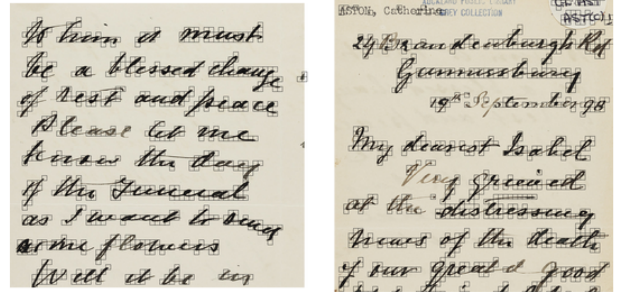 To him it must
be a blessed change
of rest and peace
Please let me
know the day
of the Funeral
as I want to send
some flowers
Will it be in
ASTON, Catherine
GREY COLLECTION
24 Brandenburgh Rd
Gunnersbury
19th September 98
My dearest Isabel
Very grieved
at the distressing
news of the death
of our great & good